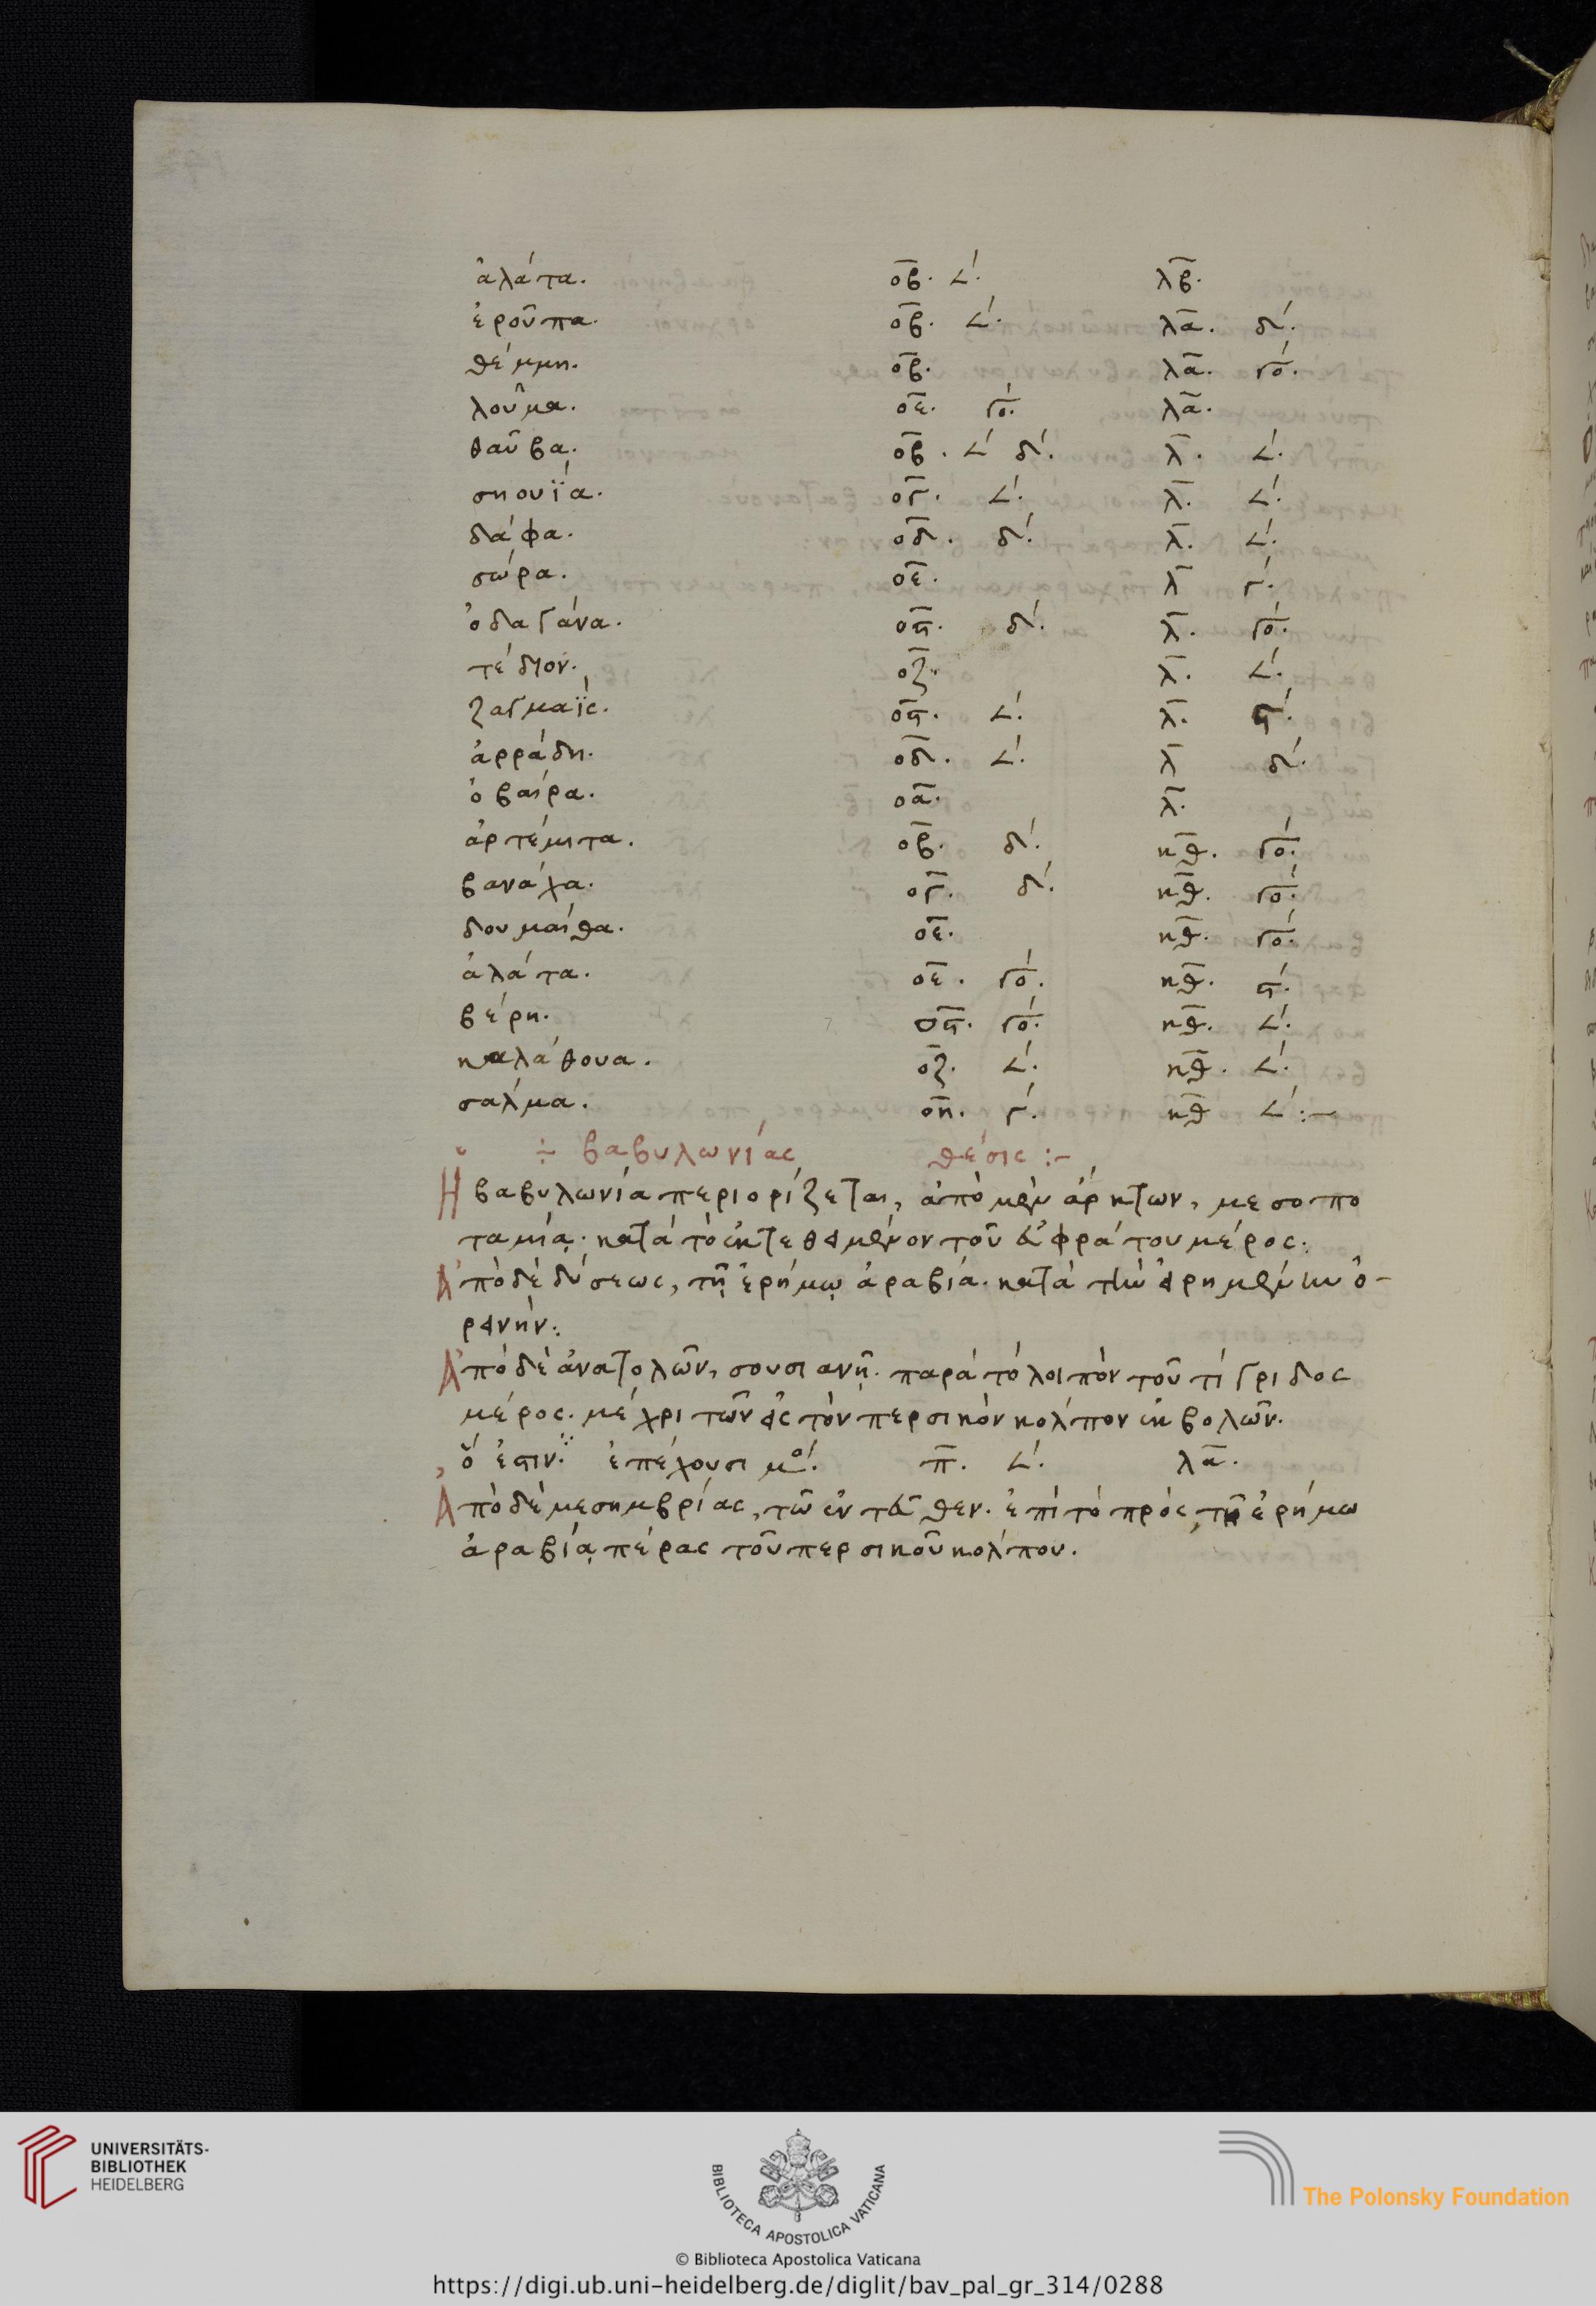 ἀλάτα. οβ. 𐅵. λβ.
ἐροῦπα. οβ. 𐅵. λα. δ.
θέμμη. οβ. λα. γο.
λοῦμα. οε. γο. λα.
θαῦβα. οβ. 𐅵 δ. λ. 𐅵.
σηουΐα. ογ. 𐅵. λ. 𐅵.
δάφα. οδ. δ. λ. 𐅵.
σώρα. οε. λ γ.
ὀδαγάνα. οϛ. δ. λ. γο.
τέδιον. οζ. λ. 𐅵.
ζαγμαΐς. οϛ. 𐅵. λ. ϛ.
ἀρράδη. οδ. 𐅵. λ δ.
ὀβαίρα. οα. λ.
ἀρτέμιτα. οβ. δ. κθ. γο.
βανάχα. ογ. δ. κθ. γο.
δουμαίθα. οε. κθ. γο.
ἀλάτα. οε. γο. κθ. ϛ.
βέρη. οϛ. γο. κθ. 𐅵.
καλάθουα. οζ. 𐅵. κθ. 𐅵.
σάλμα. οη. γ. κθ 𐅵:-
÷ βαβυλωνίας θέσις:-
Ἡ βαβυλωνία περιορίζεται, ἀπὸ μὲν ἄρκτων, μεσοπο
ταμίᾳ· κατὰ τὸ ἐκτεθειμένον τοῦ εὐφράτου μέρος:
Ἀπὸ δὲ δύσεως, τῇ ἐρήμῳ ἀραβίᾳ· κατὰ τὴν εἰρημένην ὀ-
ρεινήν:
Ἀπὸ δὲ ἀνατολῶν, σουσιανῇ· παρὰ τὸ λοιπὸν τοῦ τίγριδος
μέρος· μέχρι τῶν εἰς τὸν περσικὸν κόλπον ἐκβολῶν.
ὅ ἐστιν: ἐπέχουσι μο. π. 𐅵. λα.
Ἀπὸ δὲ μεσημβρίας, τῶ ἐντεῦθεν· ἐπὶ τὸ πρὸς τῇ ἐρήμω
ἀραβίᾳ πέρας τοῦ περσικοῦ κόλπου.
UNIVERSITÄTS-
BIBLIOTHEK
HEIDELBERG
BIBLIOTECA APOSTOLICA VATICANA
The Polonsky Foundation
© Biblioteca Apostolica Vaticana
https://digi.ub.uni-heidelberg.de/diglit/bav_pal_gr_314/0288